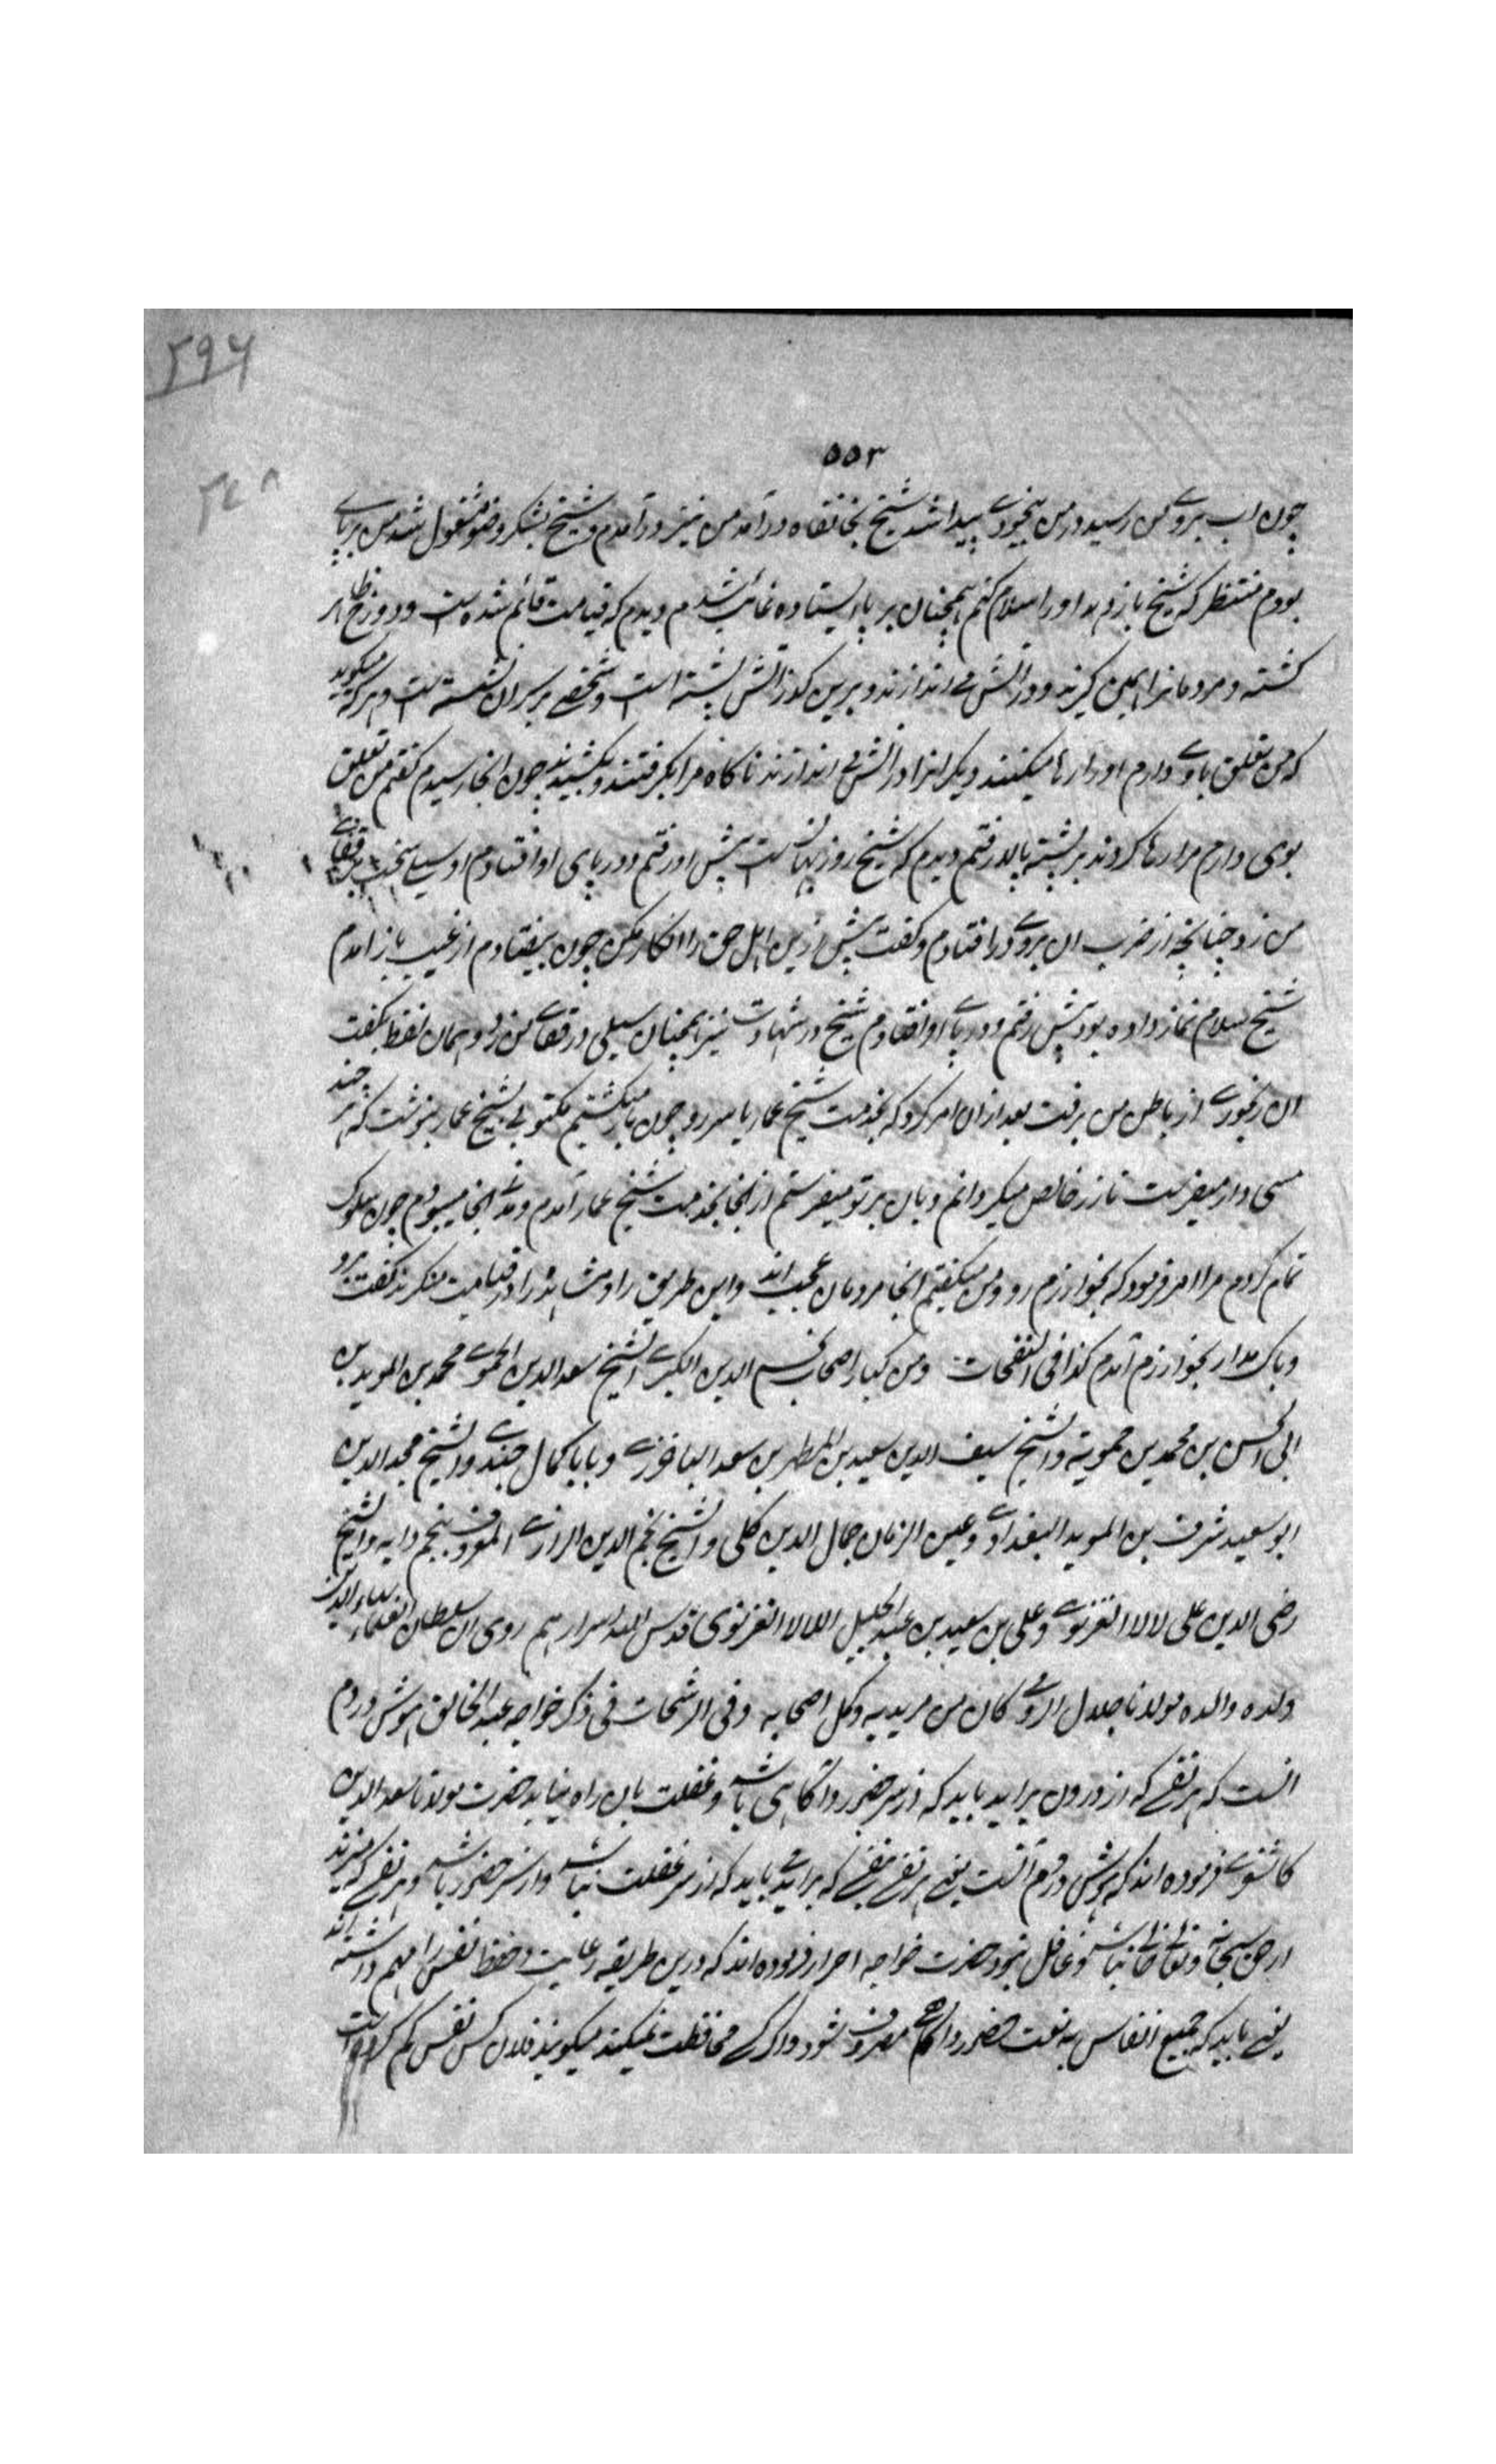 ۲۹۶
۵۵۳
۲۴۸
چون اب بروے من رسید در من بیخودے پیدا شد شیخ بخانقاه درآمد من نیز درآمدم و شیخ بشکر وضو مشغول شد من بر پاے
بودم منتظر که شیخ باز دهد او را سلام کنم همچنان بر پا ایستاده غائب شدم دیدم که قیامت قائم شده است و دوزخ ظاهر
کشته و مردمانرا همی گیرند و در اتش مے اندازند و برین گذر اتش پشته است و شخصے بر سر ان نشسته است و هر که میگوید
که من تعلق باوے دارم او را رها میکنند و دیگرانرا در اتش مے اندازند ناگاه مرا بگرفتند و بکشیدند چون انجا رسیدم گفتم من تعلق
بوی دارم مرا رها کردند بر پشته بالا رفتم دیدم که شیخ روزبهانست پیش او رفتم و در پای او افتادم او سیلے سخت بر قفاے
من زد چنانچه از ضرب ان بروے در افتادم و گفت پیش ازین اهل حق را انکار مکن چون بیفتادم از غیب باز امدم
شیخ سلام نماز داده بود پیش رفتم و در پاے او افتادم شیخ در شهادت نیز همچنان سیلی در قفاے من زد و همان لفظ بگفت
ان رنجورے از باطن من برفت بعد ازان امر کرد که بخدمت شیخ عمار یاسر رو چون باز میگشتم مکتوبی بشیخ عمار بنوشت که هر چند
مسی داری میفرست تا زر خالص میگردانم و بان بر تو میفرستم از انجا بخدمت شیخ عمار آمدم و مدتے انجا میبودم چون سلوک
تمام کردم مرا امر فرمود که بخوارزم رو و من میگفتم انجا مردمان عجیب اند و این طریق را و مشاهده را در قیامت منکرند گفت برو
و باک مدار بخوارزم آمدم کذا فی النفحات ومن کبار اصحاب نجم الدین الکبرے الشیخ سعد الدین الحموے محمد بن الموید بن
ابی الحسن بن محمد بن حمویة والشیخ سیف الدین سعید بن المطهر بن سعد الباخرزے و بابا کمال جندے والشیخ مجد الدین
ابو سعید شرف بن الموید البغدادے و عین الزمان جمال الدین گیلی والشیخ نجم الدین الرازے المعروف بنجم دایه والشیخ
رضی الدین علی لالا الغزنوے و علی بن سعید بن عبد الجلیل اللالا الغزنوی قدس الله اسرارهم روی ان سلطان العلماء بهاء الدین
ولده والده مولانا جلال الرومے کان من مریدیه وکمل اصحابه وفی الرشحات فی ذکر خواجه عبد الخالق هوش در دم
انست که هر نفسے که از درون براید باید که از سر حضور و آگاهی باشد و غفلت بان راه نیابد حضرت مولانا سعد الدین
کاشغرے فرموده اند که هوش در دم آنست یعنے هر نفسے که براید باید که از سر غفلت نباشد و از سر حضور باشد و هر نفسے که میزند
از حق سبحانه و تعالے خالے نباشد و غافل نبود حضرت خواجه احرار فرموده اند که درین طریقه رعایت و حفظ نفس را مهم داشته اند
یعنے باید که جمیع انفاس به نعت حضور و اگاهے مصروف شود و اگر کسے محافظت نمیکند میگویند فلان کس نفس گم کرده است